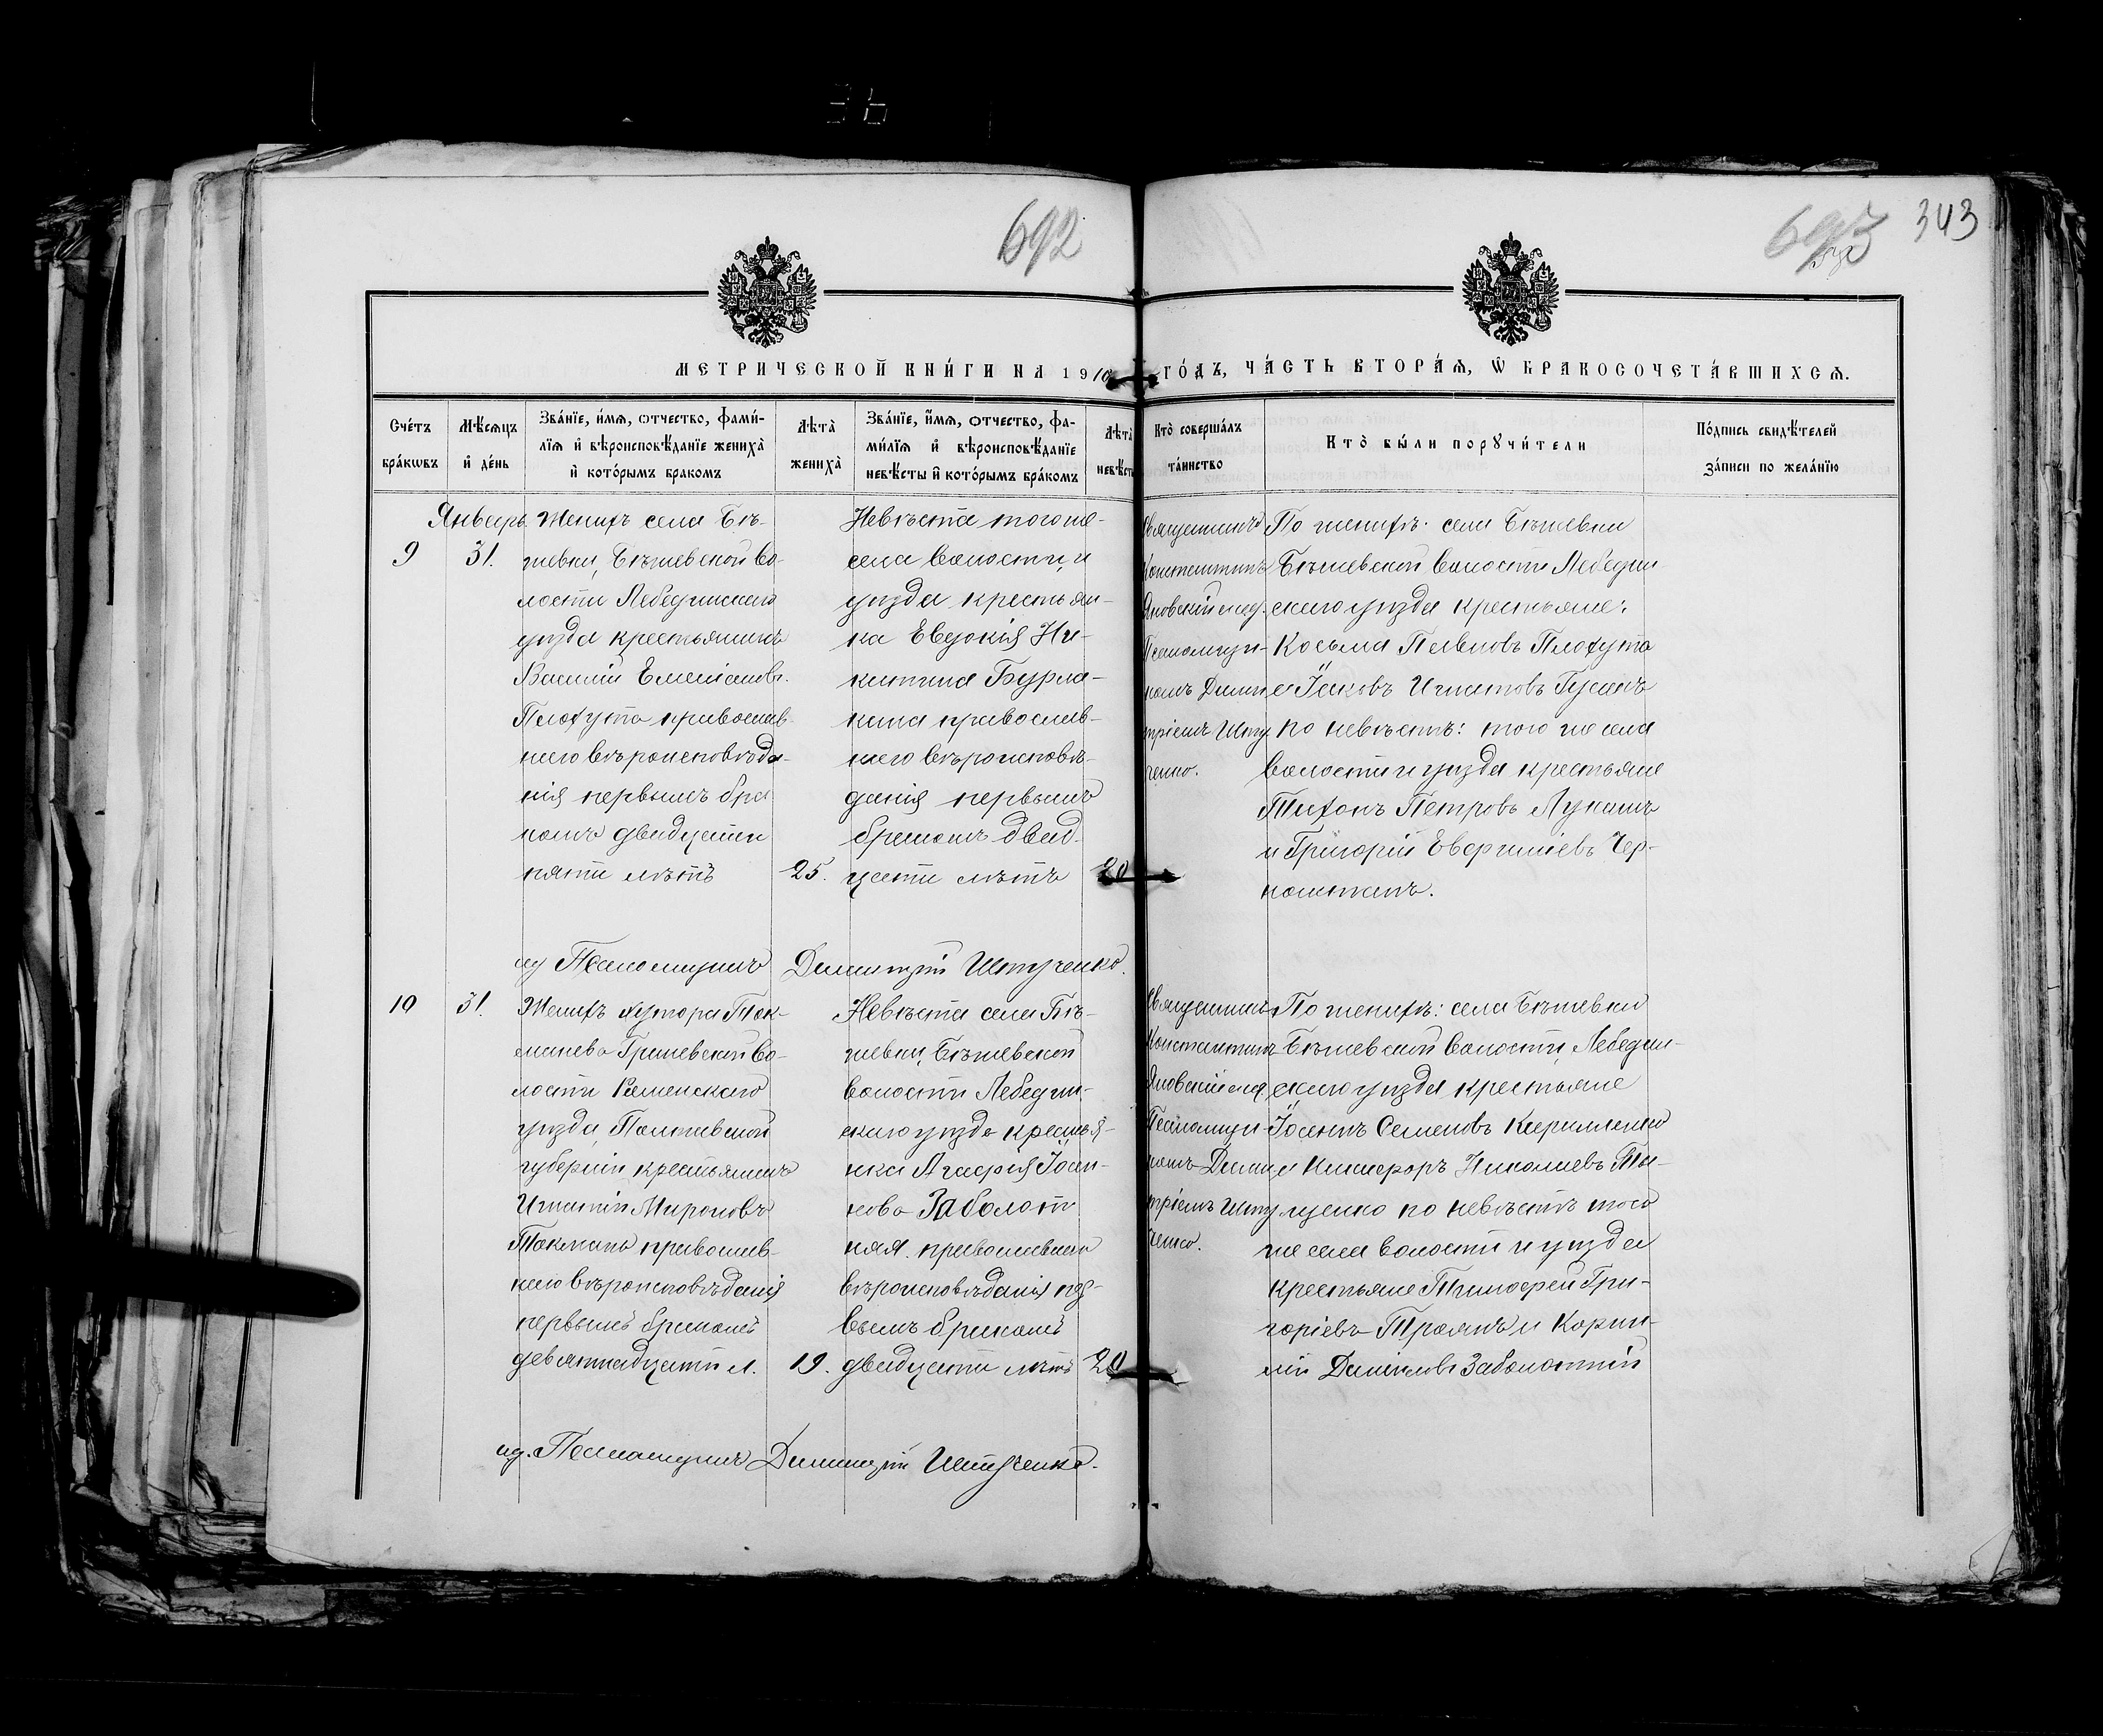 692
693
343
МЕТРИЧЕСКОЙ КНИ́ГИ НА 1910 ГО́ДЪ, ЧА́СТЬ ВТОРА́Ѧ, Ѡ҆ БРАКОСОЧЕТА́ВШИХСѦ.
Сче́тъ
бра́кѡвъ
Мѣ́сѧцъ
и҆ де́нь
Зва́нїе, и҆́мѧ, ѻтчество, фами́-
лїѧ и҆ вѣроисповѣ́данїе жениха̀
и҆ кото́рымъ бракомъ
Лѣта̀
жениха̀
Зва́нїе, и҆́мѧ, ѻтчество, фа-
ми́лїѧ и҆ вѣроисповѣ́данїе
невѣ́сты и҆ кото́рымъ бра́комъ
Лѣта̀
невѣ́сты
Кто̀ соверша́лъ
та́инство
Кто̀ бы́ли порꙋчи́тели
По́дпись свидѣ́телей
за́писи по жела́нїю
Январь
9
31.
Женихъ села Бѣ-
жевки, Бѣжевской во-
лости Лебединскаго
уѣзда крестьянинъ
Василій Емеліановъ.
Плохута православ-
наго вѣроисповѣда-
нія первымъ бра
комъ двадцати
пяти лѣтъ
25.
Невѣста тогоже-
села волости, и
уѣзда крестьян-
ка Евдокія Ни-
китина Бурла-
кина православ-
наго вѣроисповѣ-
данія первымъ
бракомъ двад-
цати лѣтъ
20
Священникъ
Константинъ
Яновскій съ ид.
Псаломщи-
комъ Дими
тріемъ Шту
ченко.
По женихѣ: села Бѣжевки
Бѣжевской волости Лебедин-
скаго уѣзда крестьяне:
Косьма Павловъ Плохута
и Іаковъ Игнатовъ Гусакъ
по невѣстѣ: того же села
волости и уѣзда крестьяне
Тихонъ Петровъ Лукашъ
и Григорій Евгеніевъ Чер-
ид Псаломщикъ Димитрій Штученко.
10
31.
Женихъ хутора Ток-
Гришевской во-
лости Роменскаго
уѣзда, Полтавской
губерніи крестьянинъ
Игнатій Мироновъ
Токмань православ-
наго вѣроисповѣданія
первымъ бракомъ
девятнадцати л.
19.
Невѣста села Бѣ-
жевки, Бѣжевской
волости Лебедин-
скаго уѣзда крестья-
нка Агафія Іоси-
пова Заболот
ная. православнаго
вѣроисповѣданія пер-
вымъ бракомъ
двадцати лѣтъ
20
Священникъ
Константинъ
Яновскій съ ид.
Псаломщи-
комъ Дими
тріемъ Шту
ченко.
По женихѣ: села Бѣжевки
Бѣжевской волости, Лебедин-
скаго уѣзда крестьяне
Іосипъ Семеновъ Кириленко
и Никифоръ Николаевъ Ти-
щенко по невѣстѣ того
же села волости и уѣзда
крестьяне Тимофей Гри-
горіевъ Троянъ и Корни-
лій Даніиловъ Заболотній
ид. Псаломщикъ Димитрій Штученко.